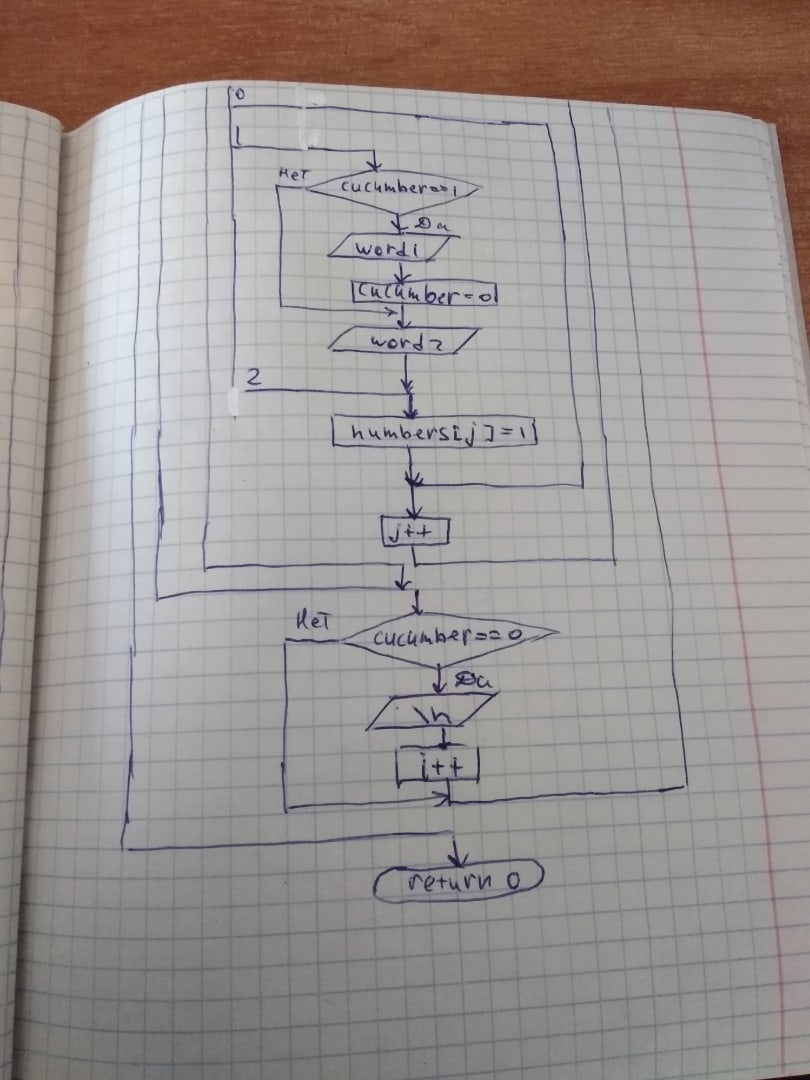 0
1
Нет
cucumber==1
Да
word1
cucumber=0
word2
2
numbers[j]=1
j++
Нет
cucumber==0
Да
\n
i++
return 0